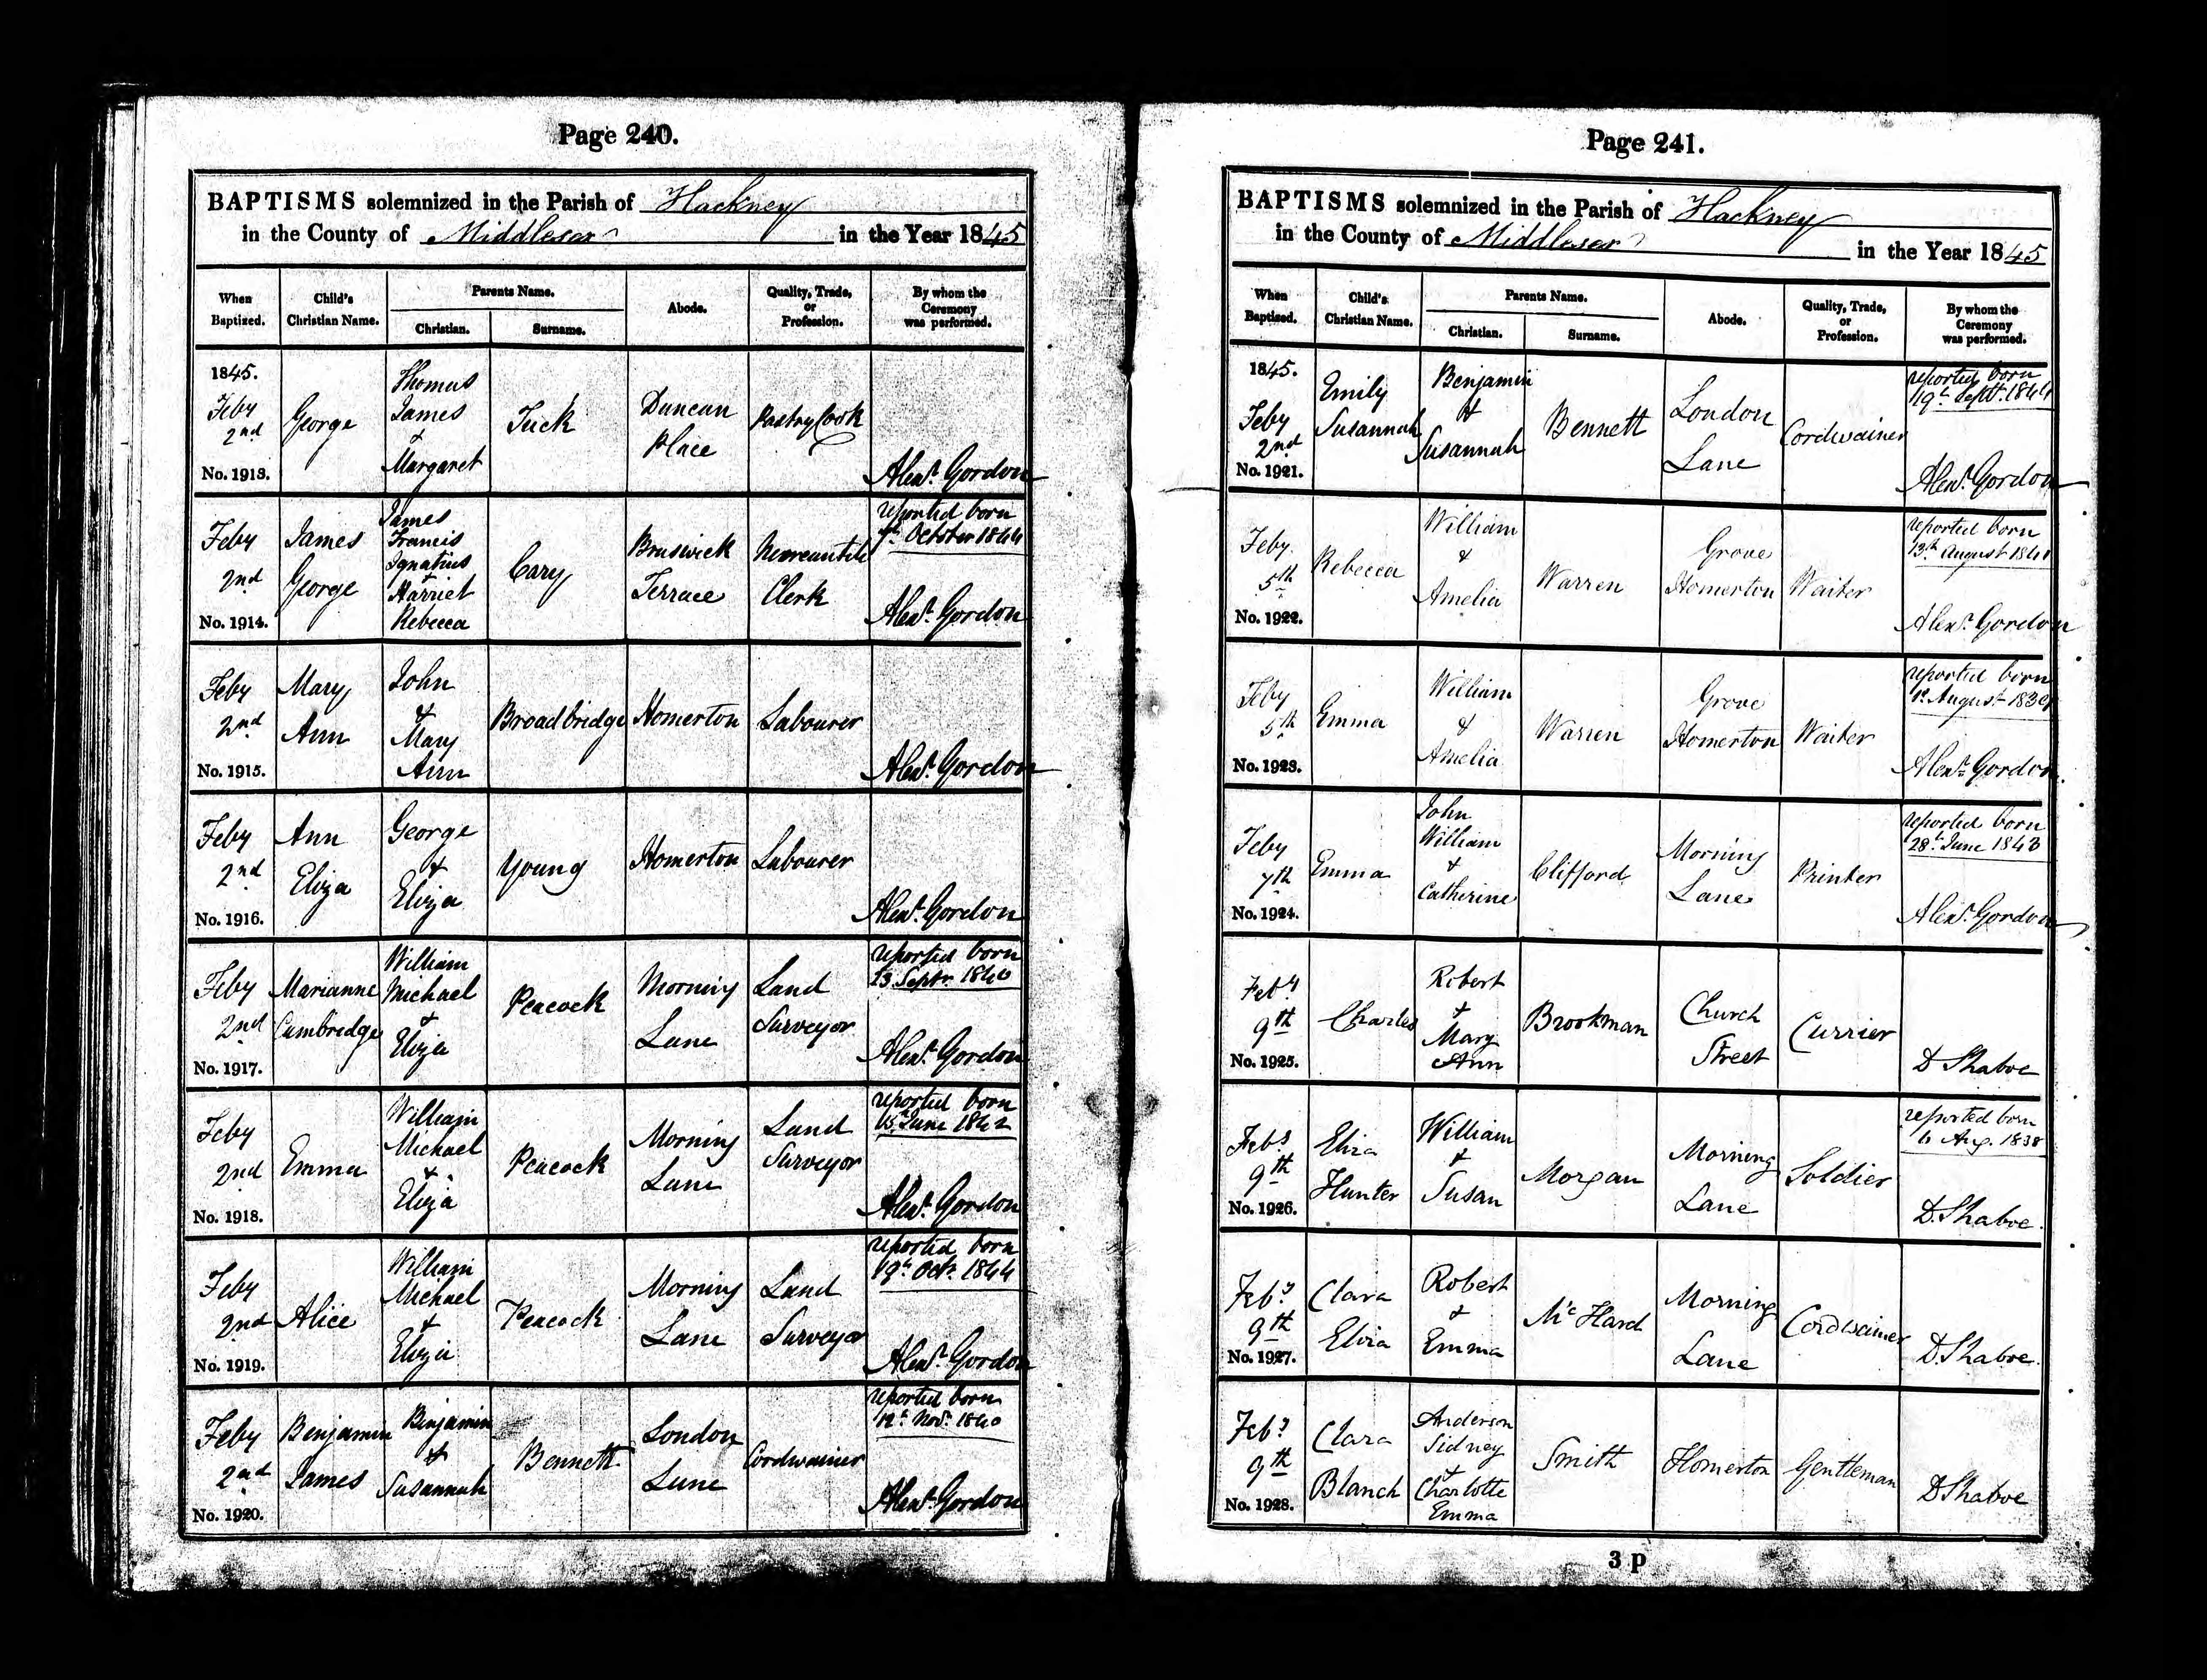 Page 240.
BAPTISMS solemnized in the Parish of Hackney
in the County of Middlesex in the Year 1845
When Baptized.
Child's Christian Name.
Parents Name.
Christian.
Surname.
Abode.
Quality, Trade, or Profession.
By whom the Ceremony was performed.
1845.
Feby
2nd
No. 1913.
George
Thomas
James
&
Margaret
Tuck
Duncan
Place
Pastry Cook
Alexr. Gordon
Feby
2nd
No. 1914.
James
George
James
Francis
Ignatius
&
Harriet
Rebecca
Cary
Bruswick
Terrace
Mercantile
Clerk
reported born
October 1844
Alexr. Gordon
Feby
2nd
No. 1915.
Mary
Ann
John
&
Mary
Ann
Broadbridge
Homerton
Labourer
Alexr. Gordon
Feby
2nd
No. 1916.
Ann
Eliza
George
&
Eliza
Young
Homerton
Labourer
Alexr. Gordon
Feby
2nd
No. 1917.
Marianne
Cambridge
William
Michael
&
Eliza
Peacock
Morning
Lane
Land
Surveyor
reported born
13 Septr.
Alexr. Gordon
Feby
2nd
No. 1918.
Emma
William
Michael
&
Eliza
Peacock
Morning
Lane
Land
Surveyor
reported born
June 1842
Alexr. Gordon
Feby
2nd
No. 1919.
Alice
William
Michael
&
Eliza
Peacock
Morning
Lane
Land
Surveyor
reported born
19th Octr. 1844
Alexr. Gordon
Feby
2nd
No. 1920.
Benjamin
James
Benjamin
&
Susannah
Bennett
London
Lane
Cordwainer
reported born
12th Novr. 1840
Alexr. Gordon
Page 241.
BAPTISMS solemnized in the Parish of Hackney
in the County of Middlesex in the Year 1845
When Baptized.
Child's Christian Name.
Parents Name.
Christian.
Surname.
Abode.
Quality, Trade, or Profession.
By whom the Ceremony was performed.
1845.
Feby
2nd
No. 1921.
Emily
Susannah
Benjamin
&
Susannah
Bennett
London
Lane
Cordwainer
reported born
19th Septr. 1844
Alexr. Gordon
Feby
5th
No. 1922.
Rebecca
William
&
Amelia
Warren
Grove
Homerton
Waiter
reported born
13th August 1841
Alexr. Gordon
Feby
5th
No. 1923.
Emma
William
&
Amelia
Warren
Grove
Homerton
Waiter
reported born
August
Alexr. Gordon
Feby
7th
No. 1924.
Emma
John
William
&
Catherine
Clifford
Morning
Lane
Printer
reported born
28th June 1843
Alexr. Gordon
Feby
9th
No. 1925.
Charles
Robert
&
Mary
Ann
Brookman
Church
Street
Currier
D Shaboe
Feby
9th
No. 1926.
Eliza
Hunter
William
&
Susan
Morgan
Morning
Lane
Soldier
reported born
Aug. 1838
D. Shaboe.
Feby
9th
No. 1927.
Clara
Eliza
Robert
&
Emma
Mc Hard
Morning
Lane
Cordwainer
D. Shaboe.
Feby
9th
No. 1928.
Clara
Blanch
Anderson
Sidney
&
Charlotte
Emma
Smith
Homerton
Gentleman
D Shaboe
3 P